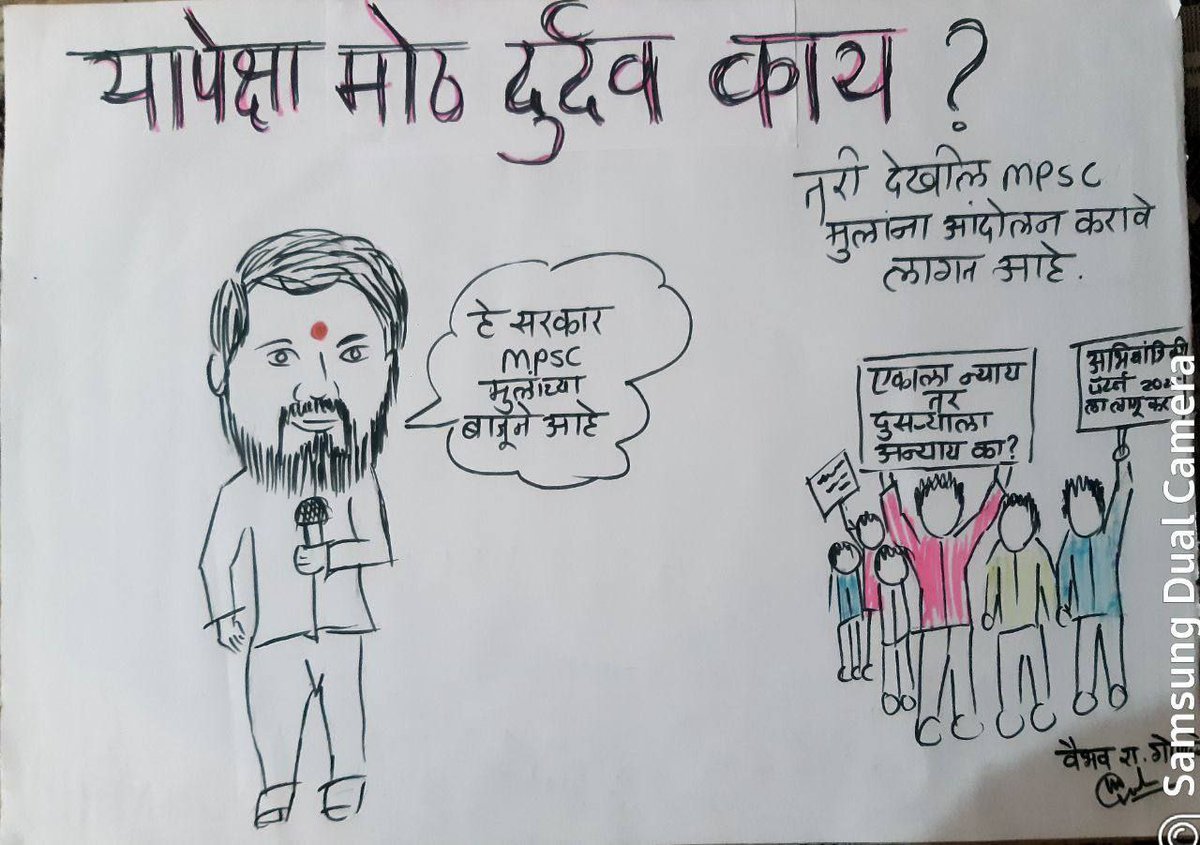 यापेक्षा मोठ दुर्दैव काय ?
तरी देखील MPSC
मुलांना आंदोलन करावे
लागत आहे.
हे सरकार
MPSC
मुलांच्या
बाजूने आहे
एकाला न्याय
तर
दुसऱ्याला
अन्याय का?
अभियांत्रिकी
पॅटर्न
लागू करा
वैभव रा.
© Samsung Dual Camera